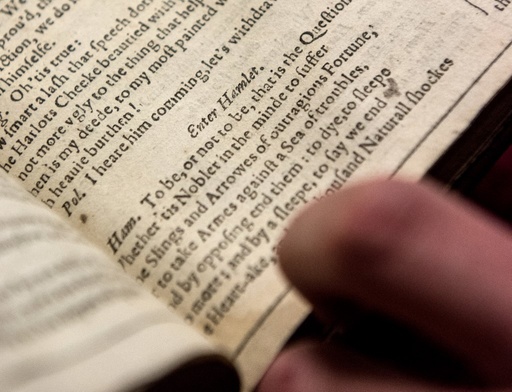 We'
prov'd, tha
ction, we do
himselfe.
Oh 'tis true:
smart a lash that speech doth
e Harlots Cheeke beautied with
not more ugly to the thing that help
hen is my deede, to my most painted w
h heavie burthen!
Pol. I heare him comming, let's withdra
Enter Hamlet.
Ham. To be, or not to be, that is the Question
Whether 'tis Nobler in the minde to suffer
e Slings and Arrowes of outragious Fortune,
to take Armes against a Sea of troubles,
d by opposing end them: to dye, to sleepe
more; and by a sleepe, to say we end
e Heart-ake, housand Naturall shockes